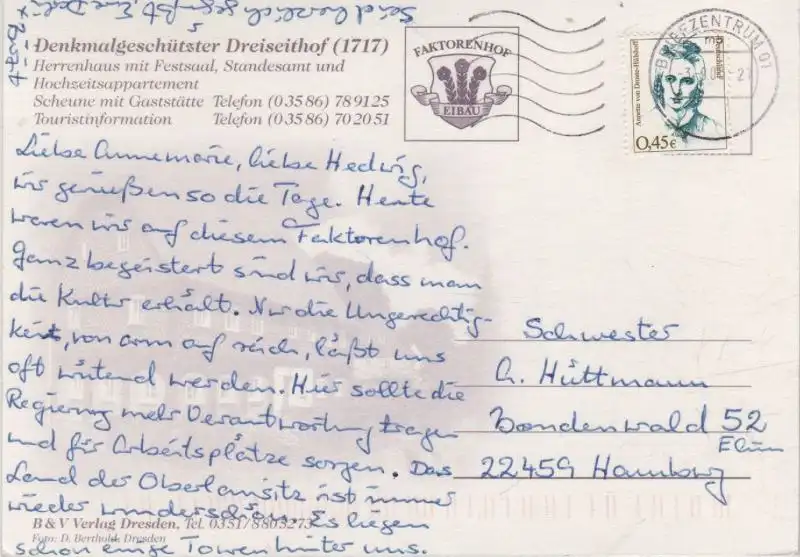 Seid herzlich gegrüßt, Eure
Denkmalgeschützter Dreiseithof (1717)
Herrenhaus mit Festsaal, Standesamt und
Hochzeitsappartement
Scheune mit Gaststätte Telefon (0 35 86) 78 91 25
Touristinformation Telefon (0 35 86) 70 20 51
FAKTORENHOF
EIBAU
BRIEFZENTRUM 01
Deutschland
Annette von Droste-Hülshoff
0,45€
Liebe Annemarie, liebe Hedwig,
wir genießen so die Tage. Heute
waren wir auf diesem Faktorenhof.
Ganz begeistert sind wir, dass man
die Kultur erhält. Nur die Ungerechtig-
keit, von arm auf reich, läßt uns
oft wütend werden. Hier sollte die
Regierung mehr Verantwortung tragen
und für Arbeitsplätze sorgen. Das
Land der Oberlausitz ist immer
wieder wunderschön. Es liegen
schon einige Touren hinter uns.
Schwester
A. Hüttmann
Bondenwald 52
22459 Hamburg
B & V Verlag Dresden, Tel. 0351/8803273
Foto: D. Berthold, Dresden